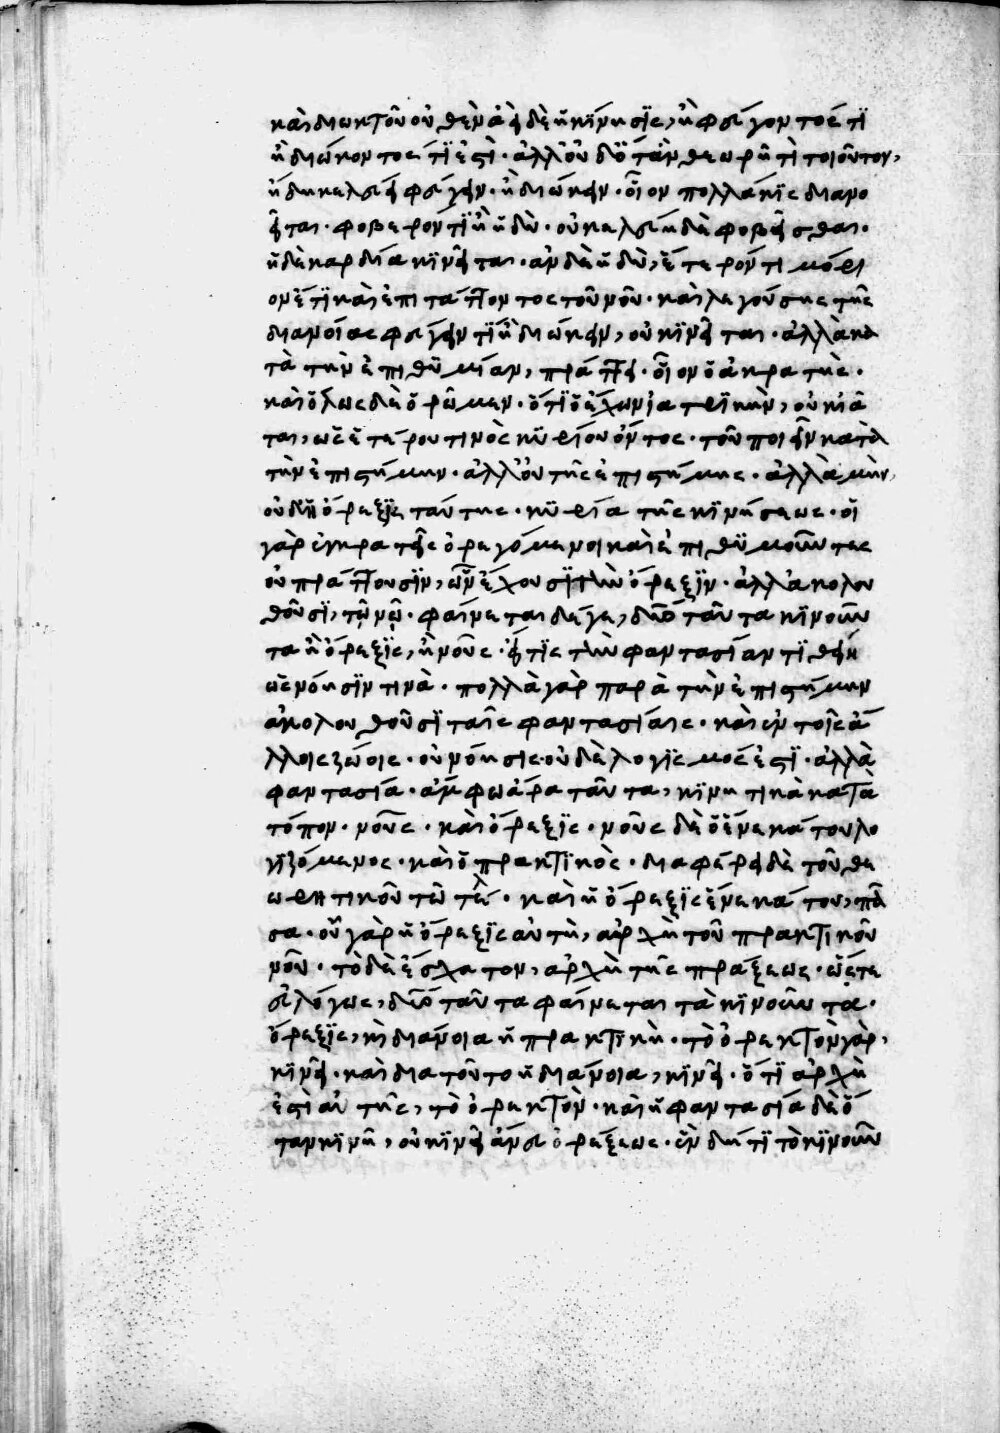 καὶ διωκτοῦ οὐθέν· ἀεὶ δὲ ἡ κίνησις, ἢ φεύγοντός τι
ἢ διώκοντός τί ἐστι· ἀλλ' οὐδ' ὅταν θεωρῇ τὶ τοιοῦτον,
ἤδη κελεύει φεύγειν· ἢ διώκειν· οἷον πολλάκις διανο
εῖται· φοβερόν τι ἢ ἡδὺ· οὐ κελεύει δὲ φοβεῖσθαι·
ἡ δὲ καρδία κινεῖται· ἂν δὲ ἡδὺ, ἕτερόν τι μόρι
ον ἔτι καὶ ἐπιτάττοντος τοῦ νοῦ· καὶ λεγούσης τῆς
διανοίας φεύγειν τι ἢ διώκειν, οὐ κινεῖται· ἀλλὰ κα
τὰ τὴν ἐπιθυμίαν, πράττει· οἷον ὁ ἀκρατὴς·
καὶ ὅλως δὲ ὁρῶμεν· ὅτι ὁ ἔχων ἰατρικὴν, οὐκ ἰᾶ
ται, ὡς ἑτέρου τινὸς κυρίου ὄντος· τοῦ ποιεῖν κατὰ
τὴν ἐπιστήμην· ἀλλ' οὐ τῆς ἐπιστήμης· ἀλλὰ μὴν,
οὐδ' ἡ ὄρεξις ταύτης· κυρία τῆς κινήσεως· οἱ
γὰρ ἐγκρατεῖς ὀρεγόμενοι καὶ ἐπιθυμοῦντες
οὐ πράττουσιν, ὧν ἔχουσι τὴν ὄρεξιν· ἀλλ' ἀκολου
θοῦσι, τῷ νῷ· φαίνεται δέ γε, δύο ταῦτα κινοῦν
τα ἢ ὄρεξις, ἢ νοῦς· εἴ τις τὴν φαντασίαν τιθείη
ὡς νόησίν τινὰ· πολλὰ γὰρ παρὰ τὴν ἐπιστήμην
ἀκολουθοῦσι ταῖς φαντασίαις· καὶ ἐν τοῖς ἄ
λλοις ζώοις· οὐ νόησις· οὐδὲ λογισμός ἐστι· ἀλλὰ
φαντασία· ἄμφω ἄρα ταῦτα, κινητικὰ κατὰ
τόπον· νοῦς· καὶ ὄρεξις· νοῦς δὲ ὁ ἕνεκά του λο
γιζόμενος· καὶ ὁ πρακτικὸς· διαφέρει δὲ τοῦ θε
ωρητικοῦ τῷ τέλ· καὶ ἡ ὄρεξις ἕνεκά του, πᾶ
σα· οὗ γὰρ ἡ ὄρεξις αὐτὴ, ἀρχὴ τοῦ πρακτικοῦ
νοῦ· τὸ δὲ ἔσχατον, ἀρχὴ τῆς πράξεως· ὥστε
εὐλόγως, δύο ταῦτα φαίνεται τὰ κινοῦντα·
ὄρεξις, καὶ διάνοια ἡ πρακτικὴ· τὸ ὀρεκτὸν γὰρ,
κινεῖ· καὶ διὰ τοῦτο ἡ διάνοια, κινεῖ· ὅτι ἀρχὴ
ἐστὶ αὐτῆς, τὸ ὀρεκτόν· καὶ ἡ φαντασία δὲ ὅ
ταν κινῇ, οὐ κινεῖ ἄνευ ὀρέξεως· ἓν δή τι τὸ κινοῦν